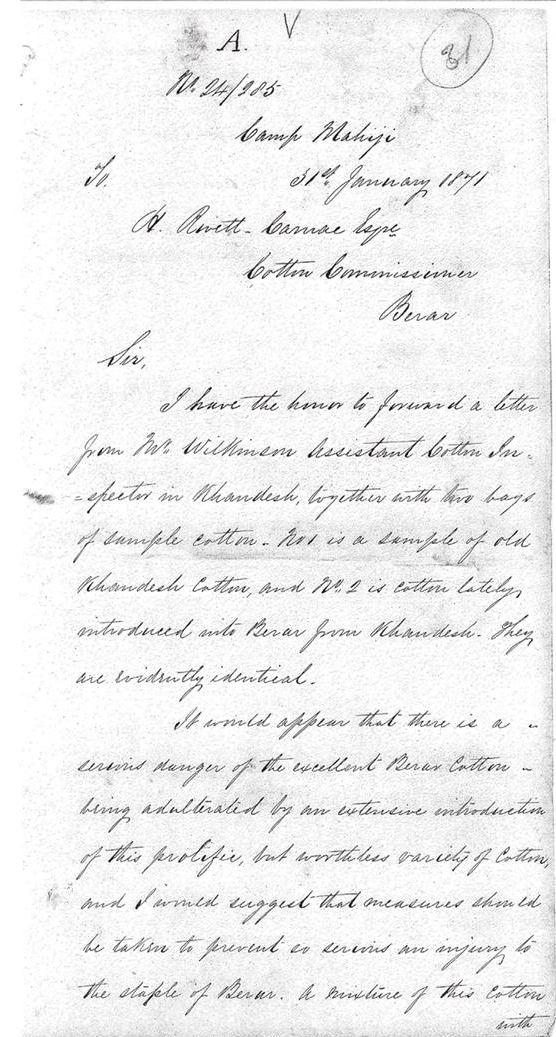 A.
31
No. 24/285
Camp Mahiji
To.
31st January 1871
H. Rivett-Carnac Esqre
Cotton Commissioner
Berar
Sir,
I have the honor to forward a letter
from Mr. Wilkinson Assistant Cotton In-
-spector in Khandesh, together with two bags
of sample cotton - No 1 is a sample of old
Khandesh Cotton, and No. 2 is cotton lately
introduced into Berar from Khandesh. They
are evidently identical.
It would appear that there is a -
serious danger of the excellent Berar Cotton -
being adulterated by an extensive introduction
of this prolific, but worthless variety of Cotton,
and I would suggest that measures should
be taken to prevent so serious an injury to
the staple of Berar. A mixture of this Cotton
with